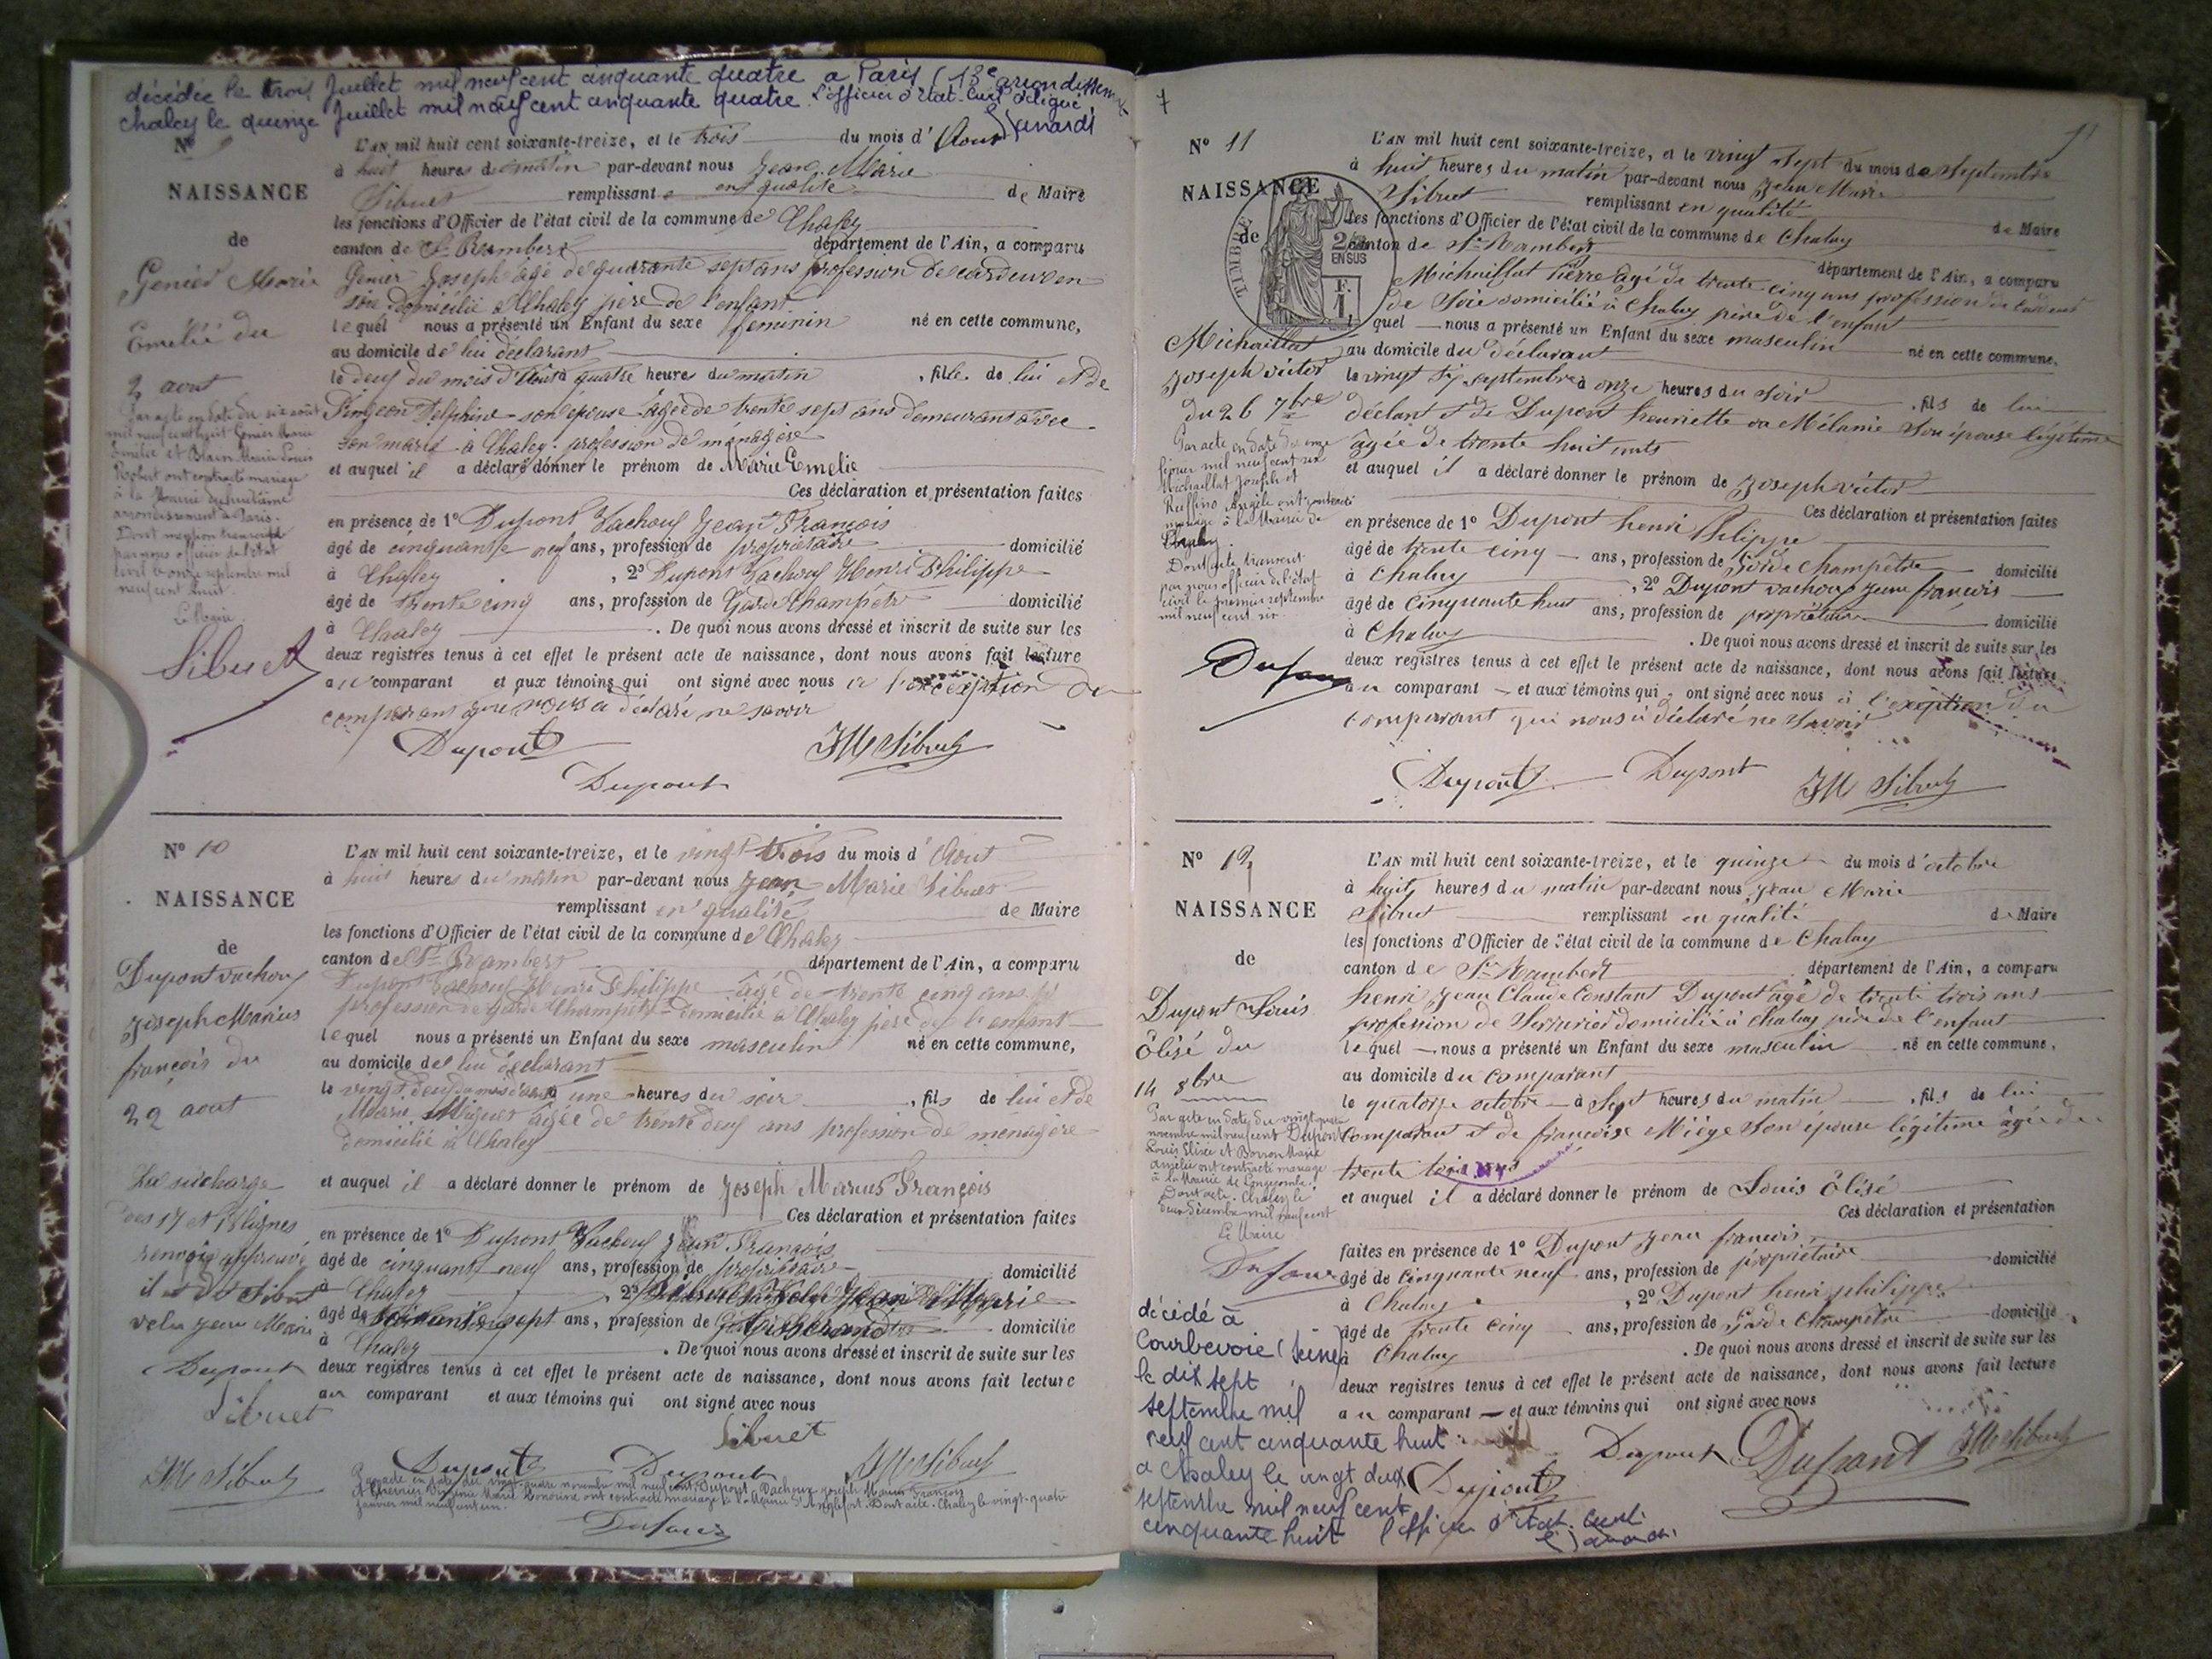 décédée le trois Juillet mil neuf cent cinquante quatre a Paris (13e arrondissement
chaley le quinze Juillet mil neuf cent cinquante quatre. L'officier d'état-civil délégué
No 9
NAISSANCE
de
Genier Marie
Emélie du
2 aout
Par acte en date du six août
mil neuf cent huit Genier Marie
Emélie et Blain Marie Louis
Robert ont contracté mariage
à la Mairie du huitième
arrondissement de Paris.
Dont mention transcrite
par nous officier de l'état
civil le onze septembre mil
neuf cent huit.
Le Maire
Sibuet
L'AN mil huit cent soixante-treize, et le trois du mois d'Aout
à huit heures du matin par-devant nous Jean Marie
Sibuet remplissant en qualité de Maire
les fonctions d'Officier de l'état civil de la commune de Chaley
canton de St Rambert département de l'Ain, a comparu
Genier Joseph âgé de quarante sept ans profession de cardeur en
soie domicilié à Chaley père de l'enfant
lequel nous a présenté un Enfant du sexe feminin né en cette commune,
au domicile de lui déclarant
le deux du mois d'Aout à quatre heures du matin, fille de lui et de
Delphine son épouse âgée de trente sept ans demeurant avec
son mari à Chaley profession de ménagère
et auquel il a déclaré donner le prénom de Marie Emelie
Ces déclaration et présentation faites
en présence de 1o Dupont Vachoux Jean François
âgé de cinquante neuf ans, profession de propriétaire domicilié
à Chaley, 2o Dupont Vachoux Henri Philippe
âgé de trente cinq ans, profession de Garde Champêtre domicilié
à Chaley. De quoi nous avons dressé et inscrit de suite sur les
deux registres tenus à cet effet le présent acte de naissance, dont nous avons fait lecture
au comparant et aux témoins qui ont signé avec nous à l'exception du
comparant que nous a déclaré ne savoir
Dupont JM Sibuet
Dupont
No 10
NAISSANCE
de
Dupont vachoux
Joseph Marius
françois du
22 aout
La surcharge
des 17 et 18 lignes
renvoie approuvé
Dupont
Sibuet
JM Sibuet
L'AN mil huit cent soixante-treize, et le vingt trois du mois d'Aout
à huit heures du matin par-devant nous Jean Marie Sibuet
remplissant en qualité de Maire
les fonctions d'Officier de l'état civil de la commune de Chaley
canton de St Rambert département de l'Ain, a comparu
Dupont Vachoux Henri Philippe âgé de trente cinq ans
profession de Garde Champêtre domicilié à Chaley père de l'enfant
lequel nous a présenté un Enfant du sexe masculin né en cette commune,
au domicile de lui déclarant
le vingt deux du mois d'aout à une heures du soir, fils de lui et de
Marie âgée de trente deux ans profession de ménagère
domicilié à Chaley
et auquel il a déclaré donner le prénom de Joseph Marius François
Ces déclaration et présentation faites
en présence de 1o Dupont Vachoux Jean François
âgé de cinquante neuf ans, profession de propriétaire domicilié
à Chaley, 2o Jean Marie
âgé de soixante sept ans, profession de domicilié
à Chaley. De quoi nous avons dressé et inscrit de suite sur les
deux registres tenus à cet effet le présent acte de naissance, dont nous avons fait lecture
au comparant et aux témoins qui ont signé avec nous
Sibuet
Dupont Dupont JM Sibuet
Par acte en date du vingt-quatre novembre mil neuf cent Dupont-Vachoux Joseph Marius François
Marie ont contracté mariage à la Mairie d'Anglefort. Dont acte. Chaley le vingt-quatre
janvier mil neuf cent un.
Dufour
7
No 11
NAISSANCE
de
TIMBRE
2/10
EN SUS
F.
1
Michaillat
Joseph victor
du 26 7bre
Par acte en date du onze
février mil neuf cent six
Michaillat Joseph et
Ruffino Angèle ont contracté
mariage à la Mairie de
Dont acte transcrit
par nous officier de l'état
civil le premier septembre
mil neuf cent six.
Dufour
L'AN mil huit cent soixante-treize, et le vingt sept du mois de Septembre
à huit heures du matin par-devant nous Jean Marie
Sibuet remplissant en qualité de Maire
les fonctions d'Officier de l'état civil de la commune de Chaley
canton de St Rambert département de l'Ain, a comparu
Michaillat Pierre âgé de trente cinq ans profession de cardeur
de Soie domicilié à Chaley père de l'enfant
quel nous a présenté un Enfant du sexe masculin né en cette commune,
au domicile du déclarant
le vingt six septembre à onze heures du soir, fils de lui
déclant et de Dupont henriette Mélanie Son épouse légitime
âgée de trente huit ants
et auquel il a déclaré donner le prénom de Joseph victor
Ces déclaration et présentation faites
en présence de 1o Dupont henri Philippe
âgé de trente cinq ans, profession de Garde Champêtre domicilié
à Chaley, 2o Dupont vachoux Jean françois
âgé de Cinquante huit ans, profession de propriétaire domicilié
à Chaley. De quoi nous avons dressé et inscrit de suite sur les
deux registres tenus à cet effet le présent acte de naissance, dont nous avons fait lecture
au comparant et aux témoins qui ont signé avec nous à l'exception du
comparant qui nous a déclaré ne Savoir
Dupont Dupont JM Sibuet
No 12
NAISSANCE
de
Dupont Louis
Ôlisé du
14 8bre
Par acte en date du vingt quatre
novembre mil neuf cent Dupont
Louis Elisé et Marie
Amélie ont contracté mariage
à la Mairie de Longecombe.
Dont acte. Chaley le
deux Décembre mil neuf cent
Le Maire
Dufour
décédé à
Courbevoie (Seine)
le dix sept
septembre mil
neuf cent cinquante huit
a Chaley le vingt deux
septembre mil neuf cent
cinquante huit l'officier d'état-civil
L'AN mil huit cent soixante-treize, et le quinze du mois d'octobre
à huit heures du matin par-devant nous Jean Marie
Sibuet remplissant en qualité de Maire
les fonctions d'Officier de l'état civil de la commune de Chaley
canton de St Rambert département de l'Ain, a comparu
henri Jean Claude Constant Dupont âgé de trente trois ans
profession de Serrurier domicilié à Chaley père de l'enfant
lequel nous a présenté un Enfant du sexe masculin né en cette commune,
au domicile du Comparant
le quatorze octobre à Sept heures du matin, fils de lui
Comparant et de françoise Miège Son épouse légitime âgée de
trente trois ans
et auquel il a déclaré donner le prénom de Louis Ôlisé
Ces déclaration et présentation
faites en présence de 1o Dupont Jean francois
âgé de Cinquante neuf ans, profession de propriétaire domicilié
à Chaley, 2o Dupont henri philippe
âgé de trente Cinq ans, profession de Garde Champêtre domicilié
à Chaley. De quoi nous avons dressé et inscrit de suite sur les
deux registres tenus à cet effet le présent acte de naissance, dont nous avons fait lecture
au comparant et aux témoins qui ont signé avec nous
Dupont Dupont JM Sibuet
Dupont